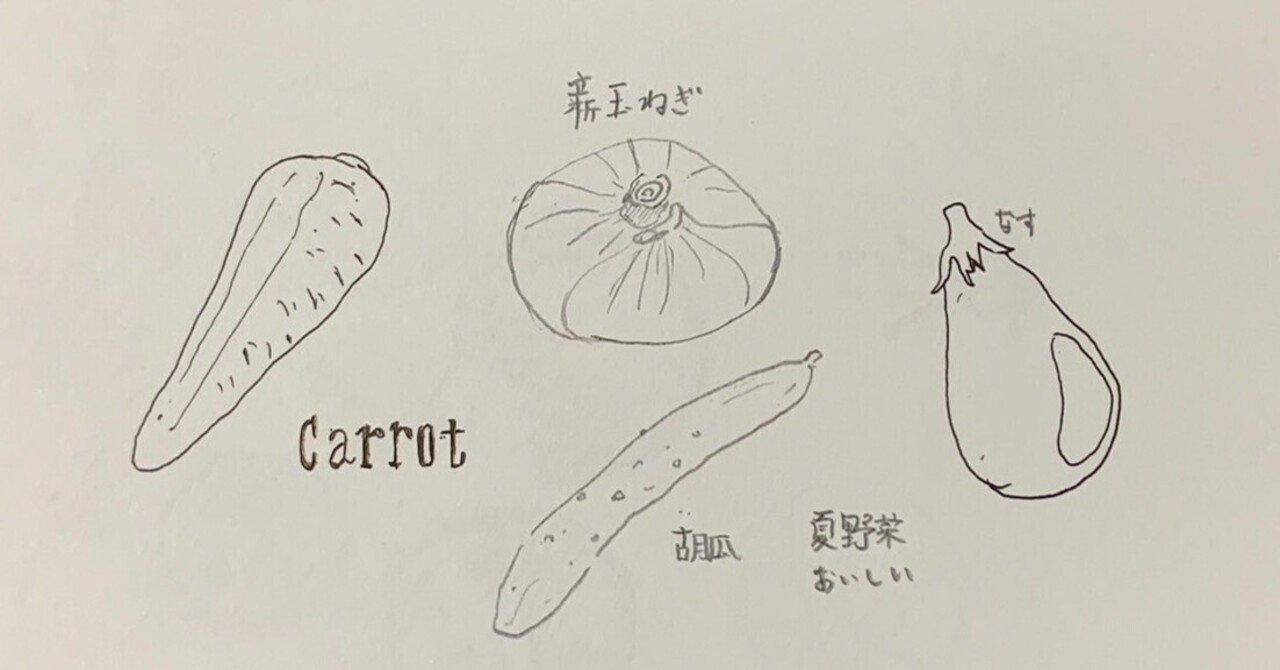 新玉ねぎ
なす
Carrot
胡瓜
夏野菜
おいしい